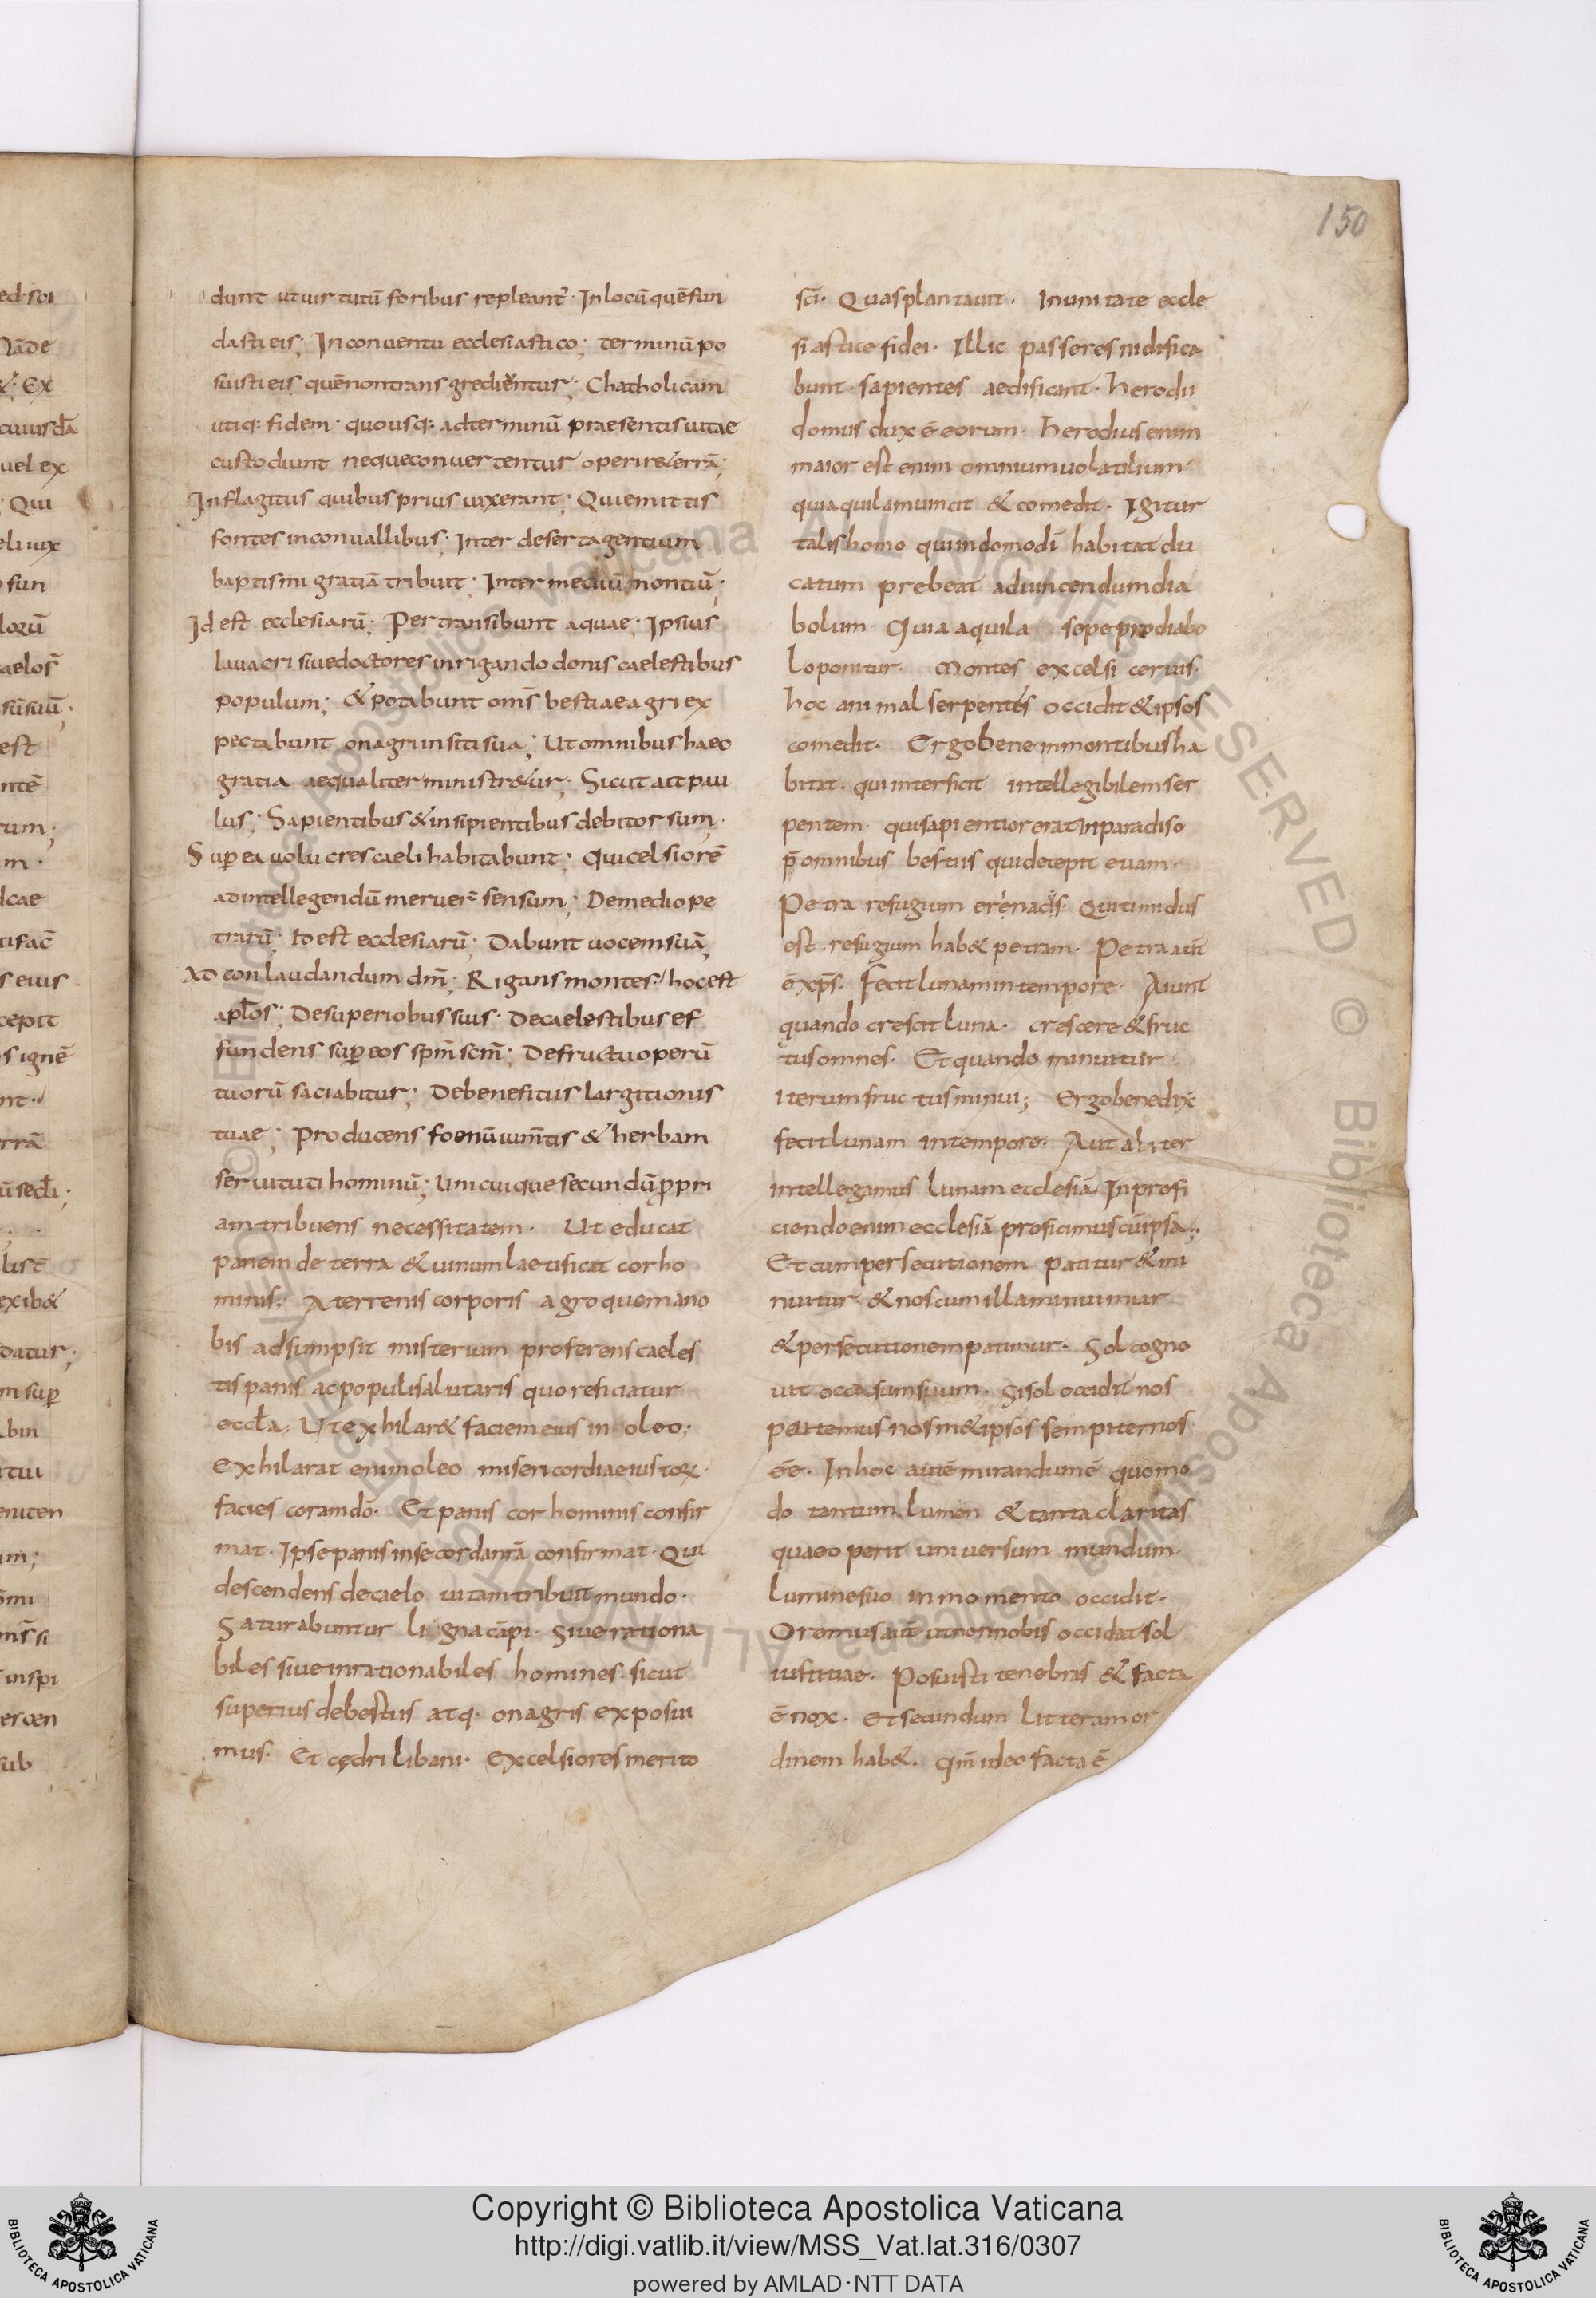 150
dunt ut uirtutū foribus repleant̄· In locū quē fun
dasti eis; In conuentu ecclesiastico; terminū po
suisti eis quē non transgredientur; Chatholicam
utiq: fidem· quousq: ad terminū praesentis uitae
custodiunt neque conuertentur operire &errā;
In flagitiis quibus prius uixerant; Qui emittis
fontes in conuallibus; Inter deserta gentium
baptismi gratiā tribuit; Inter mediū montiū;
Id est ecclesiarū; Pertransibunt aquae; Ipsius
lauacri siue doctores inrigando donis caelestibus
populum; & potabunt oms̄ bestiae agri ex
pectabunt onagri in siti sua; Ut omnibus haec
gratia aequaliter ministr&ur; Sicut ait pau
lus; Sapientibus & insipientibus debitor sum;
Sup̱ ea uolucres caeli habitabunt; Qui celsiorē
ad intellegendū meruer̄ sensum; De medio pe
trarū; Id est ecclesiarū; Dabunt uocem suā;
Ad conlaudandum dm̄; Rigans montes; hoc est
apl̄os; De superiobus suis· De caelestibus ef
fundens sup̱ eos spm̄ scm̄; De fructu operū
tuorū saciabitur; De benefitiis largitionis
tuae; Producens foenū ium̄tis & herbam
seruituti hominū; Unicuique secundū ꝓpri
am tribuens necessitatem· Ut educat
panem de terra & uinum laetificat cor ho
minis; A terrenis corporis agro quem a no
bis adsumpsit misterium proferens caeles
tis panis ac populi salutaris quo reficiatur
eccl̄a; Ut exhilar& faciem eius in oleo;
exhilarat enim oleo misericordiae iustoꝝ·
facies coram dō· Et panis cor hominis confir
mat· Ipse panis in se cordanrā confirmat· Qui
descendens de caelo uitam tribuit mundo·
Saturabuntur ligna cāpi· Siue rationa
biles siue inrationabiles homines· sicut
superius de bestiis atq· onagris exposui
mus· Et cędri libani· Excelsiores merito
sc̄i· Quas plantauit· In unitate eccle
siasticе fidei· Illic passeres nidifica
bunt· sapientes aedificant· herodii
domus dux ē eorum· herodius enim
maior est enim omnium uolatilium
qui aquilam uincit & comedit· Igitur
talis homo qui in domo dī habitat du
catum prebeat ad uincendum dia
bolum· Quia aquila sepe pro diabo
lo ponitur· Montes excelsi ceruis·
hoc animal serpentes occidit & ipsos
comedit· Ergo bene in montibus ha
bitat· qui interficit intellegibilem ser
pentem· qui sapientior erat in paradiso
p̄ omnibus bestiis qui decepit euam·
Petra refugium erenacis· Qui timidus
est· refugium hab& petram· Petra aut̄
ē xp̄s· Fecit lunam in tempore· Aiunt
quando crescit luna· crescere & fruc
tus omnes· Et quando minuitur·
iterum fructus minui; Ergo bene dix̄
fecit lunam in tempore· Aut aliter
intellegamus lunam ecclesiā· In profi
ciendo enim ecclesiā proficimus cū ipsa;
Et cum persecutionem patitur & mi
nuitur· & nos cum illa minuimur
& persecutionem patimur· Sol cogno
uit occasum suum· Si sol occidit nos
pertemus nosm&ipsos sempiternos
ēē· In hoc autē mirandum ē quomo
do tantum lumen & tanta claritas
quae operit uniuersum mundum·
lumine suo in momento occidit·
Oremus aut̄ ut non nobis occidat sol
iustitiae· Posuisti tenebras & facta
ē nox· Et secundum litteram or
dinem hab&· Qm̄ ideo facta ē
Copyright © Biblioteca Apostolica Vaticana
http://digi.vatlib.it/view/MSS_Vat.lat.316/0307
powered by AMLAD·NTT DATA
BIBLIOTECA APOSTOLICA VATICANA
BIBLIOTECA APOSTOLICA VATICANA